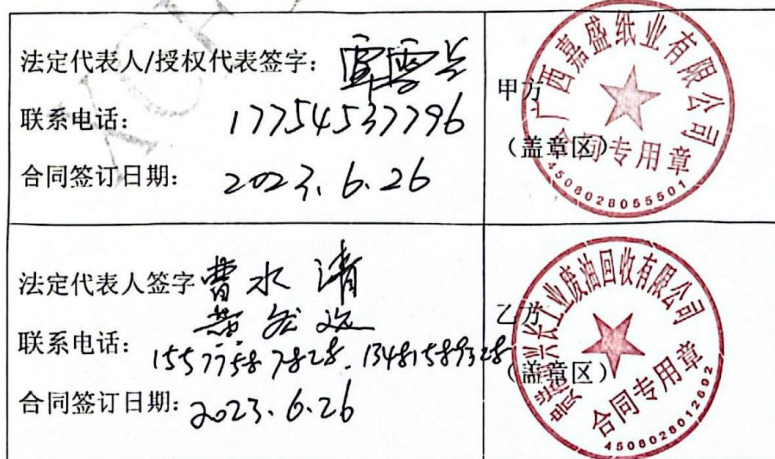 法定代表人/授权代表签字：
联系电话： 17754537796
合同签订日期： 2023.6.26
甲方
（盖章区）
广西嘉盛纸业有限公司
合同专用章
4508028055501
法定代表人签字 曹水清
联系电话： 15577587828. 13481589328
合同签订日期： 2023.6.26
乙方
（盖章区）
兴长工业废油回收有限公司
合同专用章
4508028012692